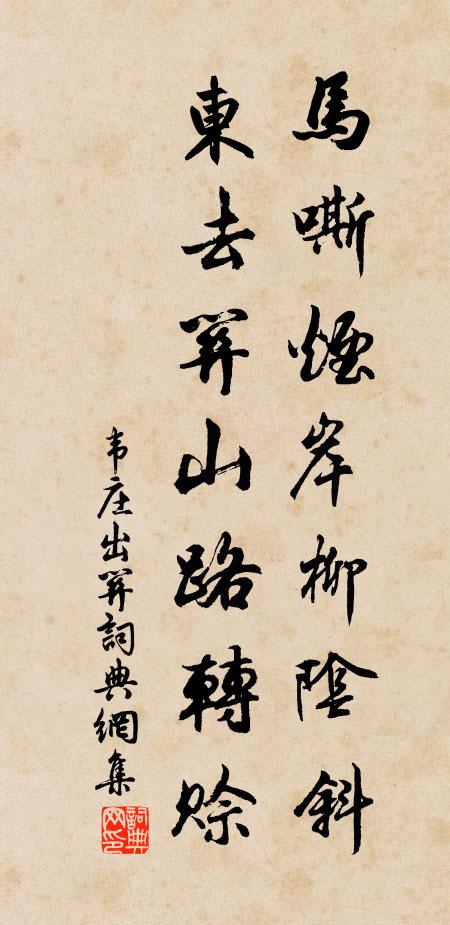 馬嘶煙岸柳陰斜
東去關山路轉賒
韦庄出關詞典網集
詞典網印